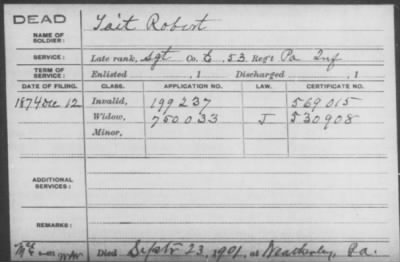 DEAD
NAME OF SOLDIER: Tait Robert
SERVICE: Late rank, Sgt Co. E, 53. Reg't Pa Inf
TERM OF SERVICE: Enlisted , 1 Discharged , 1
DATE OF FILING. CLASS. APPLICATION NO. LAW. CERTIFICATE NO.
1874 Dec 12 Invalid, 199237 569015
Widow, 750033 J 530908
Minor,
ADDITIONAL SERVICES:
REMARKS:
Died Septr 23, 1901, at Pa.